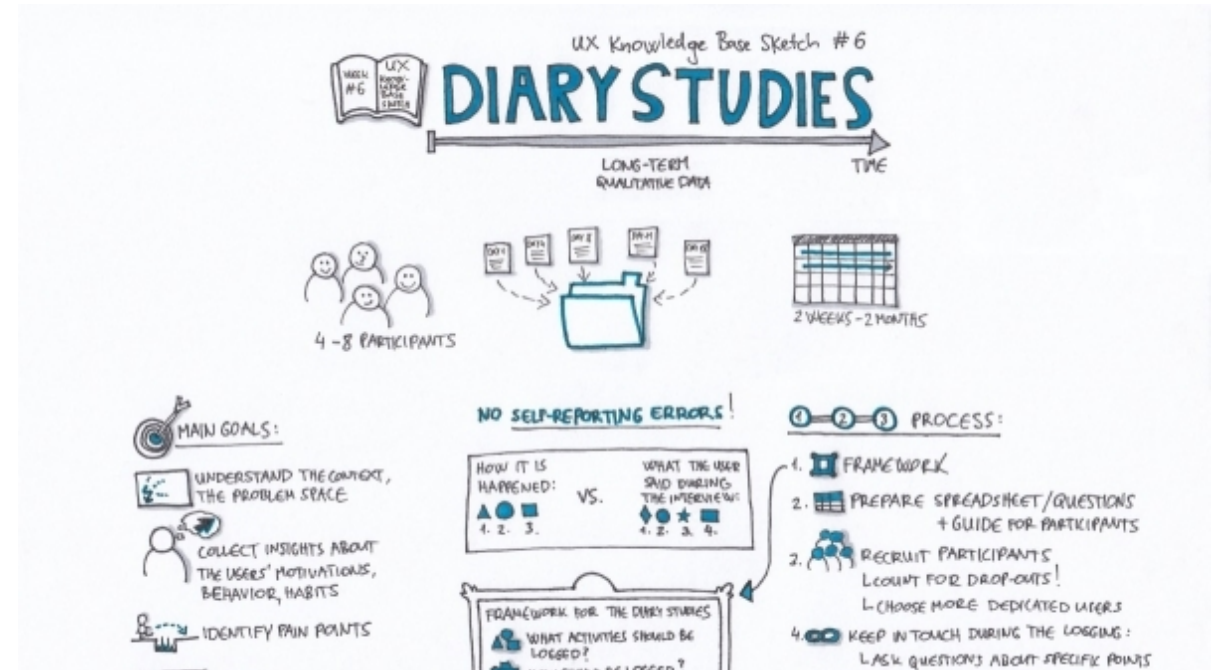 UX Knowledge Base Sketch #6
WEEK
#6
UX
KNOW-
LEDGE
BASE
SKETCH
DIARY STUDIES
LONG-TERM
QUALITATIVE DATA
TIME
DAY 1
DAY 4
DAY 8
4-8 PARTICIPANTS
2 WEEKS-2 MONTHS
MAIN GOALS:
UNDERSTAND THE CONTEXT,
THE PROBLEM SPACE
COLLECT INSIGHTS ABOUT
THE USERS' MOTIVATIONS,
BEHAVIOR, HABITS
IDENTIFY PAIN POINTS
NO SELF-REPORTING ERRORS!
HOW IT IS
HAPPENED:
1. 2. 3.
VS.
WHAT THE USER
SAID DURING
THE INTERVIEW:
1. 2. 3. 4.
FRAMEWORK FOR THE DIARY STUDIES
WHAT ACTIVITIES SHOULD BE
LOGGED?
BE LOGGED?
1 2 3 PROCESS:
1. FRAMEWORK
2. PREPARE SPREADSHEET/QUESTIONS
+ GUIDE FOR PARTICIPANTS
3. RECRUIT PARTICIPANTS
COUNT FOR DROP-OUTS!
CHOOSE MORE DEDICATED USERS
4. KEEP IN TOUCH DURING THE LOGGING:
ASK QUESTIONS ABOUT SPECIFIC POINTS